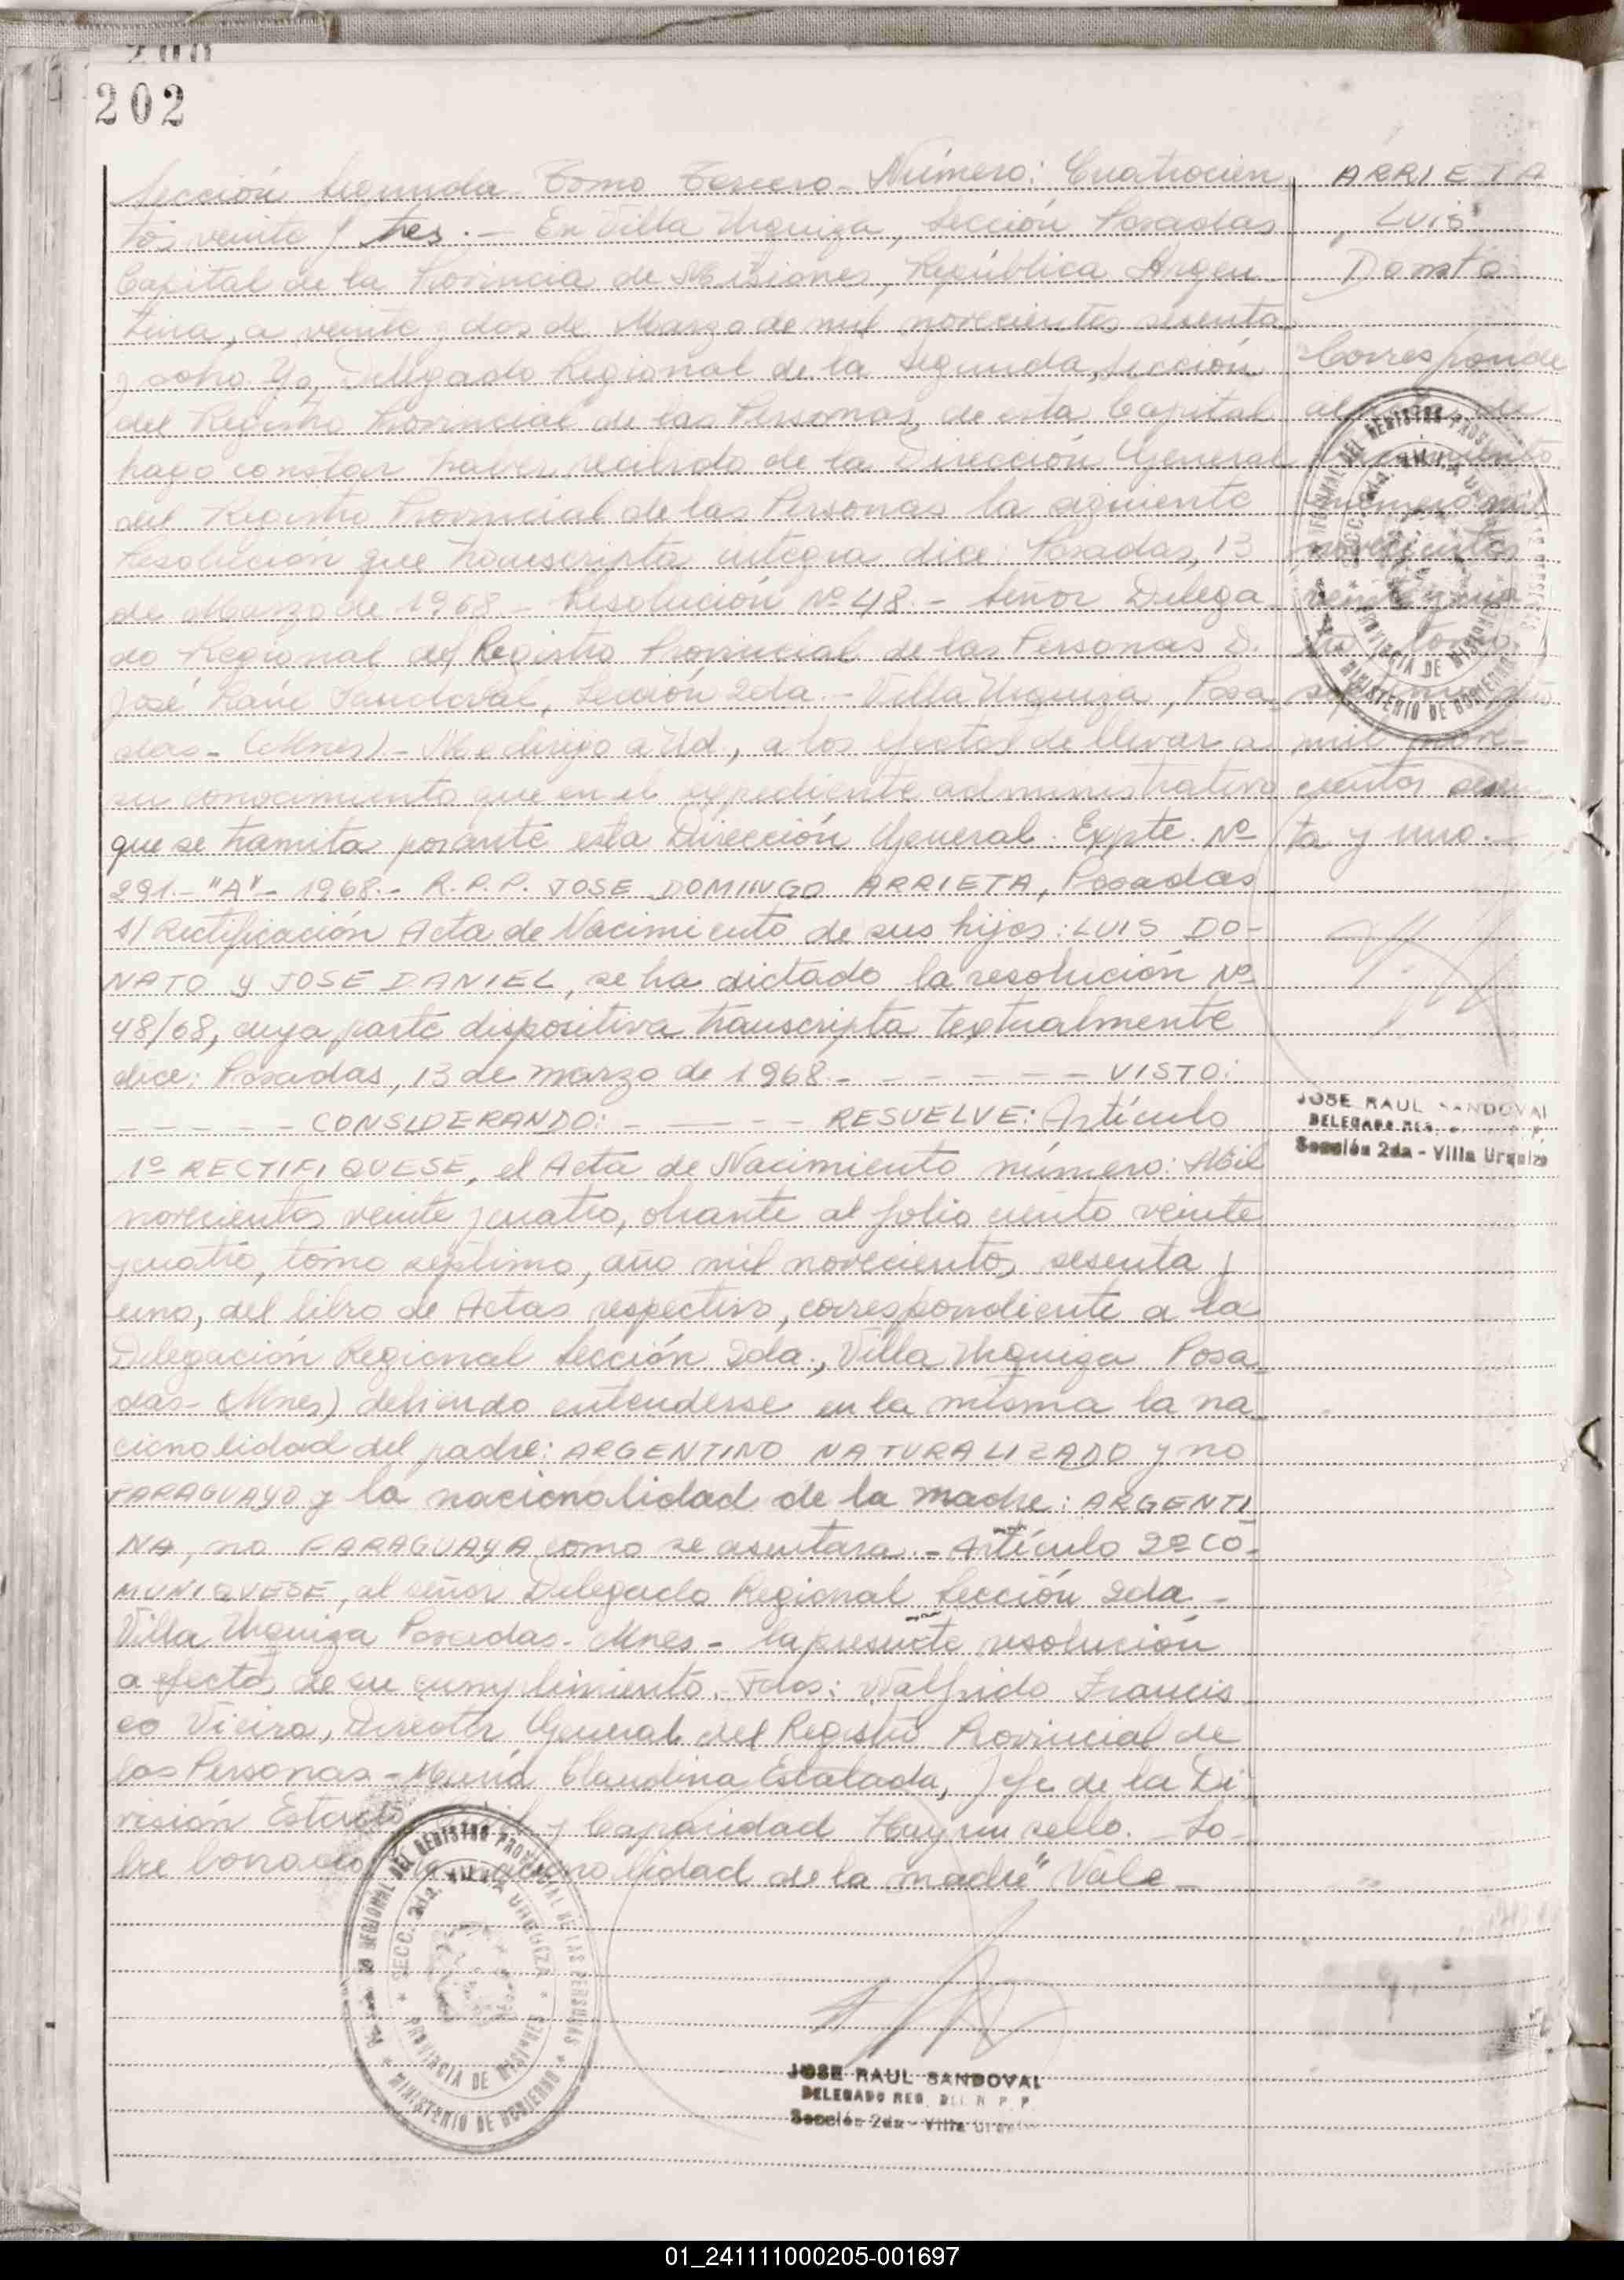 202
Sección Segunda - Tomo Tercero - Número: Cuatrocien
tos veinte y tres.- En Villa Urquiza, Sección Posadas
Capital de la Provincia de Misiones, República Argen
tina, a veinte y dos de Marzo de mil novecientos sesenta
y ocho. Yo, Delegado Regional de la Segunda Sección
del Registro Provincial de las Personas, de esta Capital
hago constar haber recibido de la Dirección General
del Registro Provincial de las Personas la siguiente
Resolución que transcripta integra dice: Posadas, 13
de Marzo de 1968.- Resolución Nº 48.- Señor Delega
do Regional del Registro Provincial de las Personas D.
José Raúl Sandoval, Sección 2da.- Villa Urquiza, Posa
das - (Mnes) - Me dirijo a Ud., a los efectos de llevar a
su conocimiento que en el expediente administrativo
que se tramita por ante esta Dirección General. Expte. Nº
291.- "A" - 1968.- R.P.P. JOSE DOMINGO ARRIETA, Posadas
s/ Rectificación Acta de Nacimiento de sus hijos: LUIS DO-
NATO y JOSE DANIEL, se ha dictado la resolución Nº
48/68, cuya parte dispositiva transcripta textualmente
dice: Posadas, 13 de marzo de 1968.- - - - - - - VISTO:
- - - - - CONSIDERANDO: - - - - - RESUELVE: Artículo
1º RECTIFIQUESE, el Acta de Nacimiento número: Mil
novecientos veinte y cuatro, obrante al folio ciento veinte
y cuatro, tomo séptimo, año mil novecientos sesenta y
uno, del libro de Actas respectivo, correspondiente a la
Delegación Regional Sección 2da., Villa Urquiza Posa-
das - (Mnes) debiendo entenderse en la misma la na
cionalidad del padre: ARGENTINO NATURALIZADO y no
PARAGUAYO y la nacionalidad de la madre: ARGENTI
NA, no PARAGUAYA como se asentara.- Artículo 2º CO-
MUNIQUESE, al señor Delegado Regional Sección 2da -
Villa Urquiza Posadas - Mnes - la presente resolución
a efectos de su cumplimiento. Fdos: Walfrido Francis
co Vieira, Director General del Registro Provincial de
las Personas - María Claudina Estalada, Jefe de la Di
visión Estado Civil y Capacidad Hay un sello. - So-
bre borrado "la nacionalidad de la madre" Vale -
ARRIETA
LUIS
Donato
Corresponde
al acta de
nacimiento
número mil
novecientos
veinte y cua
tro tomo
séptimo año
mil nove-
cientos sesen
ta y uno.-
JOSE RAUL SANDOVAL
DELEGADO REG.
Sección 2da - Villa Urquiza
JOSE RAUL SANDOVAL
DELEGADO REG. DEL R P P
Sección 2da - Villa Urquiza
REGIONAL DEL REGISTRO PROVINCIAL DE LAS PERSONAS
SECC. 2da. VILLA URQUIZA
PROVINCIA DE MISIONES
MINISTERIO DE GOBIERNO
01_241111000205-001697